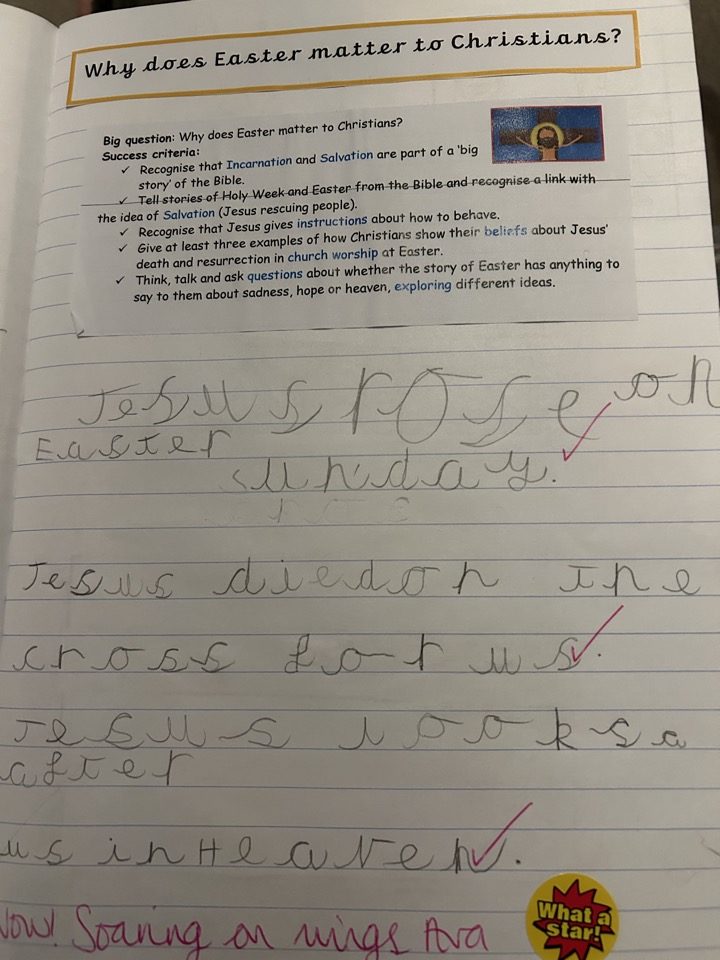 Why does Easter matter to Christians?
Big question: Why does Easter matter to Christians?
Success criteria:
✓ Recognise that Incarnation and Salvation are part of a 'big
story' of the Bible.
✓ Tell stories of Holy Week and Easter from the Bible and recognise a link with
the idea of Salvation (Jesus rescuing people).
✓ Recognise that Jesus gives instructions about how to behave.
✓ Give at least three examples of how Christians show their beliefs about Jesus'
death and resurrection in church worship at Easter.
✓ Think, talk and ask questions about whether the story of Easter has anything to
say to them about sadness, hope or heaven, exploring different ideas.
Jesus rose on
Easter
sunday.
Jesus diedon the
cross for us.
Jesus looksa
after
us inHeaven.
Wow! Soaring on wings Ava
What a
star!